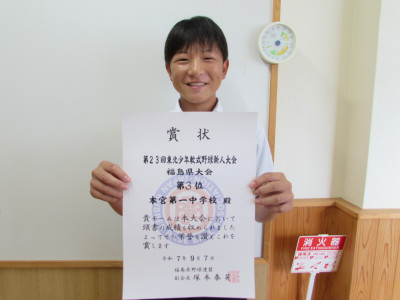 賞状
第23回東北少年軟式野球新人大会
福島県大会
第3位
本宮第一中学校 殿
貴チームは本大会において
頭書の成績を収められました
よってその栄誉を讃えこれを
賞します
令和 7年9月7日
福島県野球連盟
副会長 塚本泰英
消火器
FIRE EXTINGUISHER